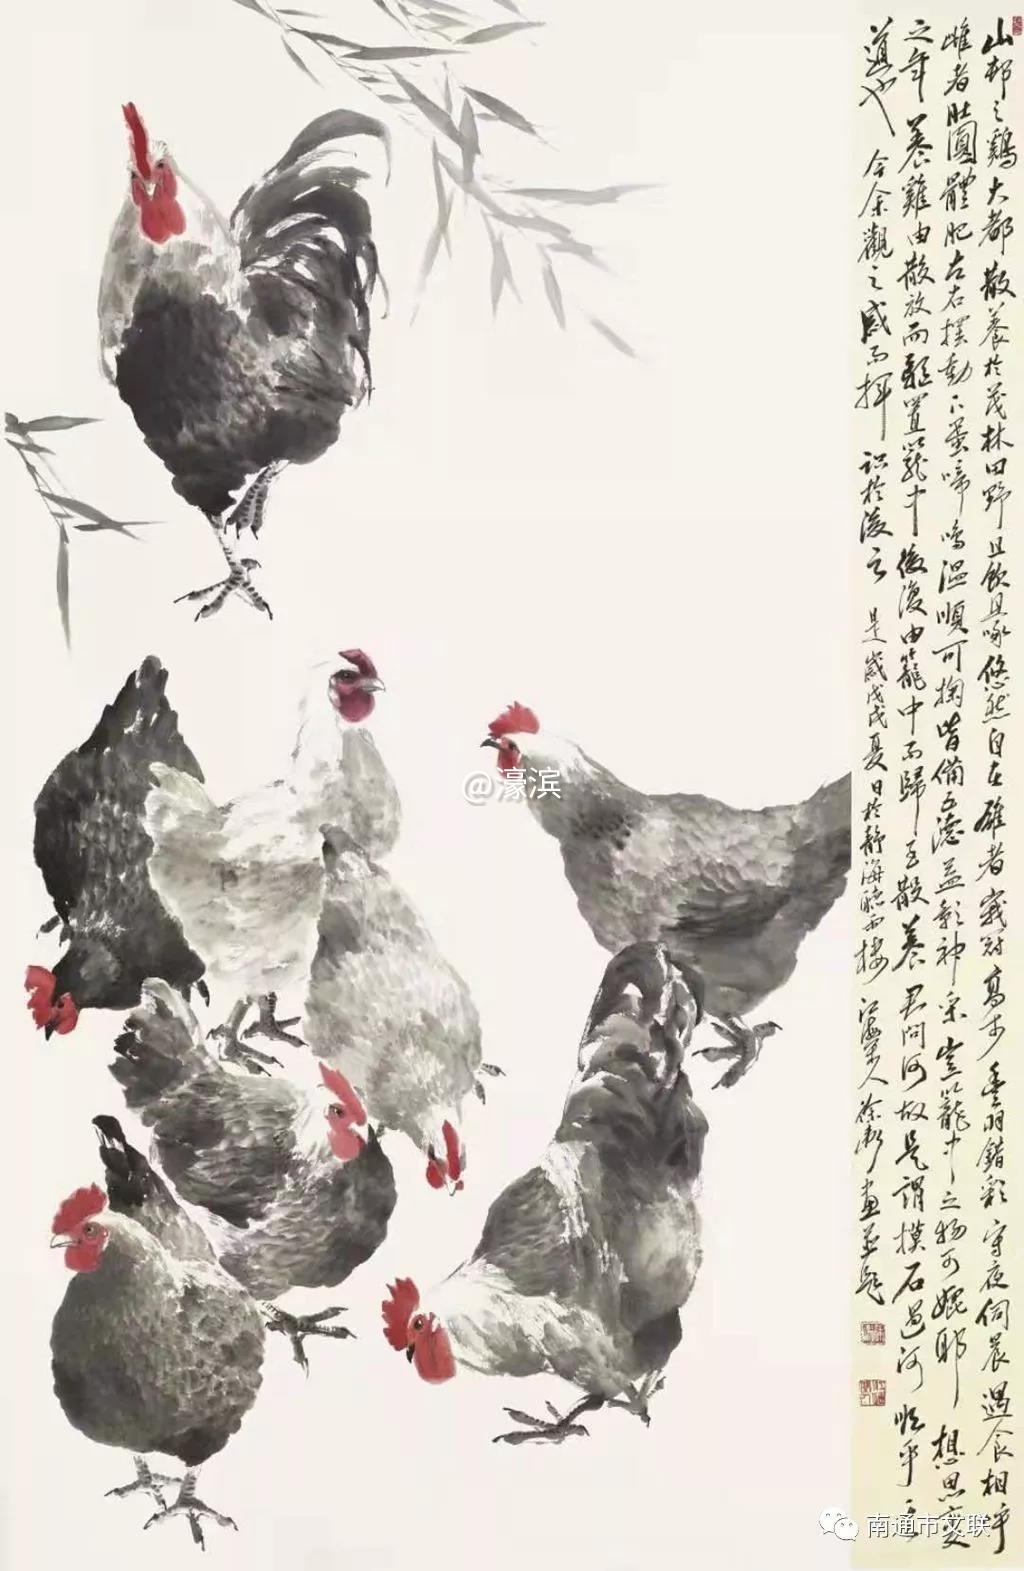 山邨之鷄大都散養於茂林田野且飲且啄悠然自在雄者峩冠高步垂羽錯彩守夜伺晨遇食相呼
雌者肚圓體肥左右擺動下蛋啼鳴溫順可掬皆備五德益彰神采豈籠中之物可媲耶 想思變
之年養雞由散放而驅置籠中後復由籠中而歸至散養君問何故是謂摸石過河順乎天
道也 今余觀之感而揮 识於後云 是歲戊戌夏日於靜海聽雨樓 江海里人徐衛畫並題
@濠滨
南通市文联